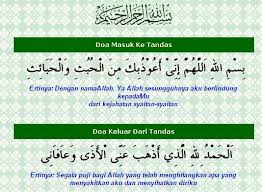 بسم الله الرحمن الرحيم
Doa Masuk Ke Tandas
بِسْمِ اللهِ اَللَّهُمَّ إِنِّيْ أَعُوْذُبِكَ مِنَ الْخُبُثِ وَالْخَبَائِثِ
Ertinya: Dengan namaAllah. Ya Allah sesungguhnya aku berlindung
kepadaMu
dari kejahatan syaitan-syaitan
Doa Keluar Dari Tandas
اَلْحَمْدُ لِلَّهِ الَّذِي أَذْهَبَ عَنِّى الْأَذَى وَعَافَانِي
Ertinya: Segala puji bagi Allah yang telah menghilangkan apa yang
menyakitkan aku dan menyihatkan diriku